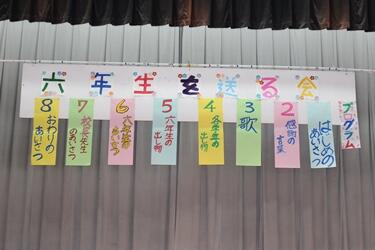 六年生を送る会
プログラム
1 はじめの
あいさつ
2 感謝の
言葉
3 歌
4 各学年の
出し物
5 六年生の
出し物
6 六年生の
あいさつ
7 校長先生
のあいさつ
8 おわりの
あいさつ